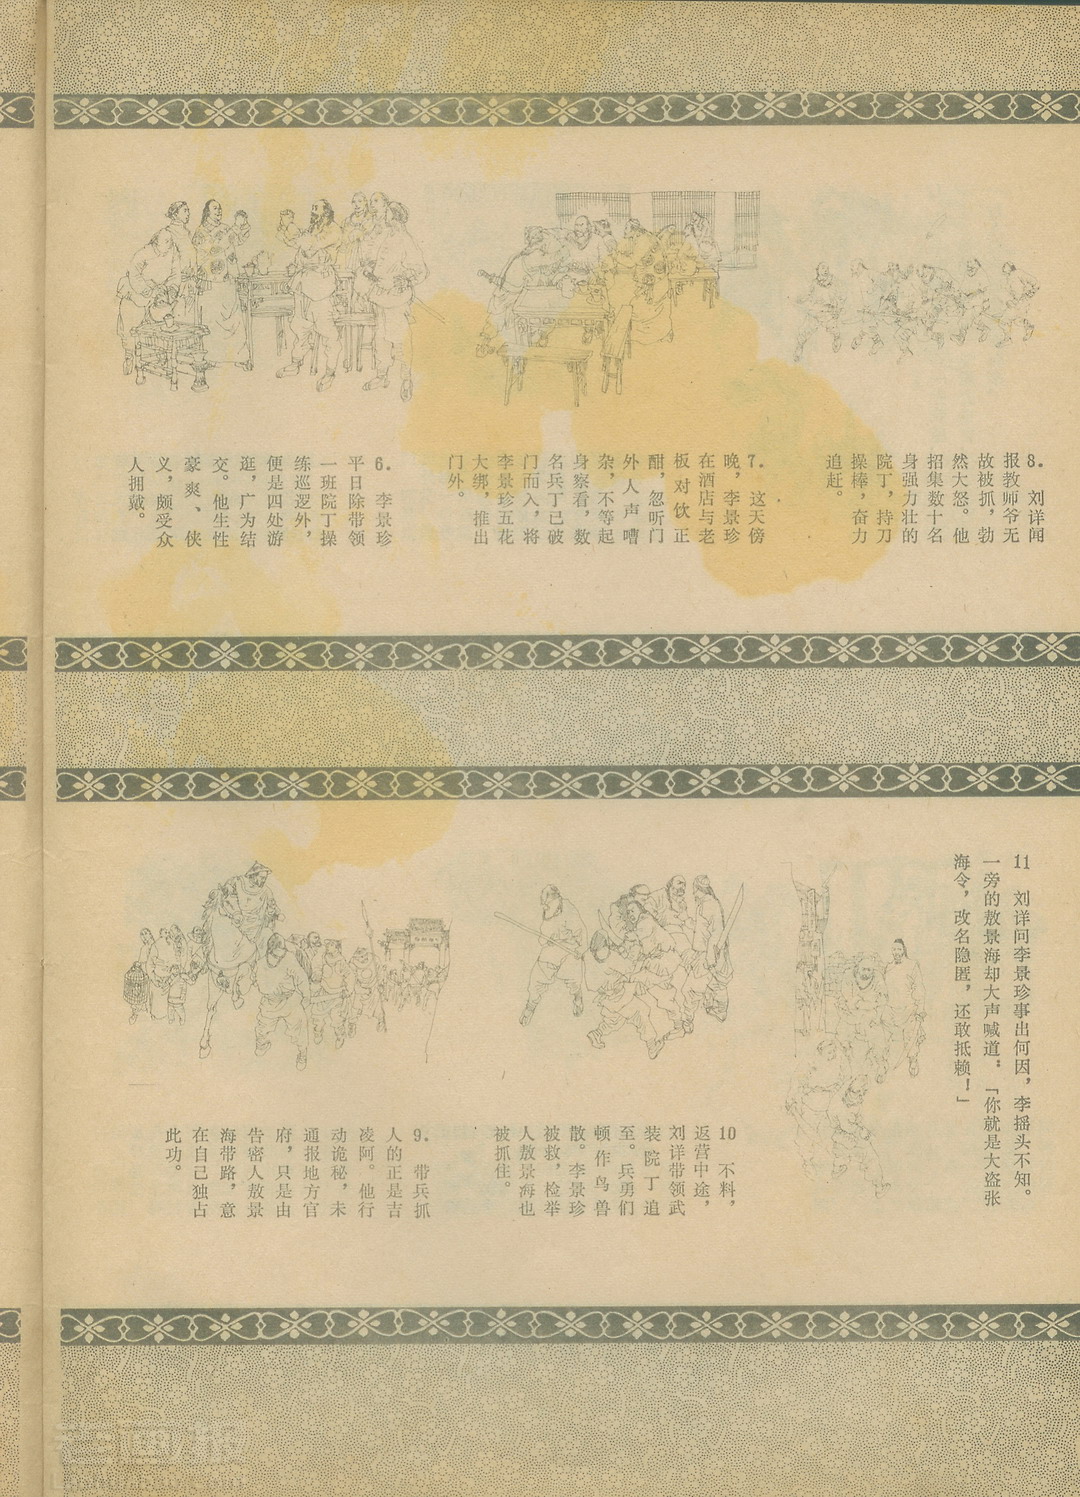 6. 李景珍
平日除带领
一班院丁操
练巡逻外，
便是四处游
逛，广为结
交。他生性
豪爽、侠
义，颇受众
人拥戴。
7. 这天傍
晚，李景珍
在酒店与老
板对饮正
酣，忽听门
外人声嘈
杂，不等起
身察看，数
名兵丁已破
门而入，将
李景珍五花
大绑，推出
门外。
8. 刘详闻
报教师爷无
故被抓，勃
然大怒。他
招集数十名
身强力壮的
院丁，持刀
操棒，奋力
追赶。
9. 带兵抓
人的正是吉
凌阿。他行
动诡秘，未
通报地方官
府，只是由
告密人敖景
海带路，意
在自己独占
此功。
10 不料，
返营中途，
刘详带领武
装院丁追
至。兵勇们
顿作鸟兽
散。李景珍
被救，检举
人敖景海也
被抓住。
11 刘详问李景珍事出何因，李摇头不知。
一旁的敖景海却大声喊道：「你就是大盗张
海令，改名隐匿，还敢抵赖！」